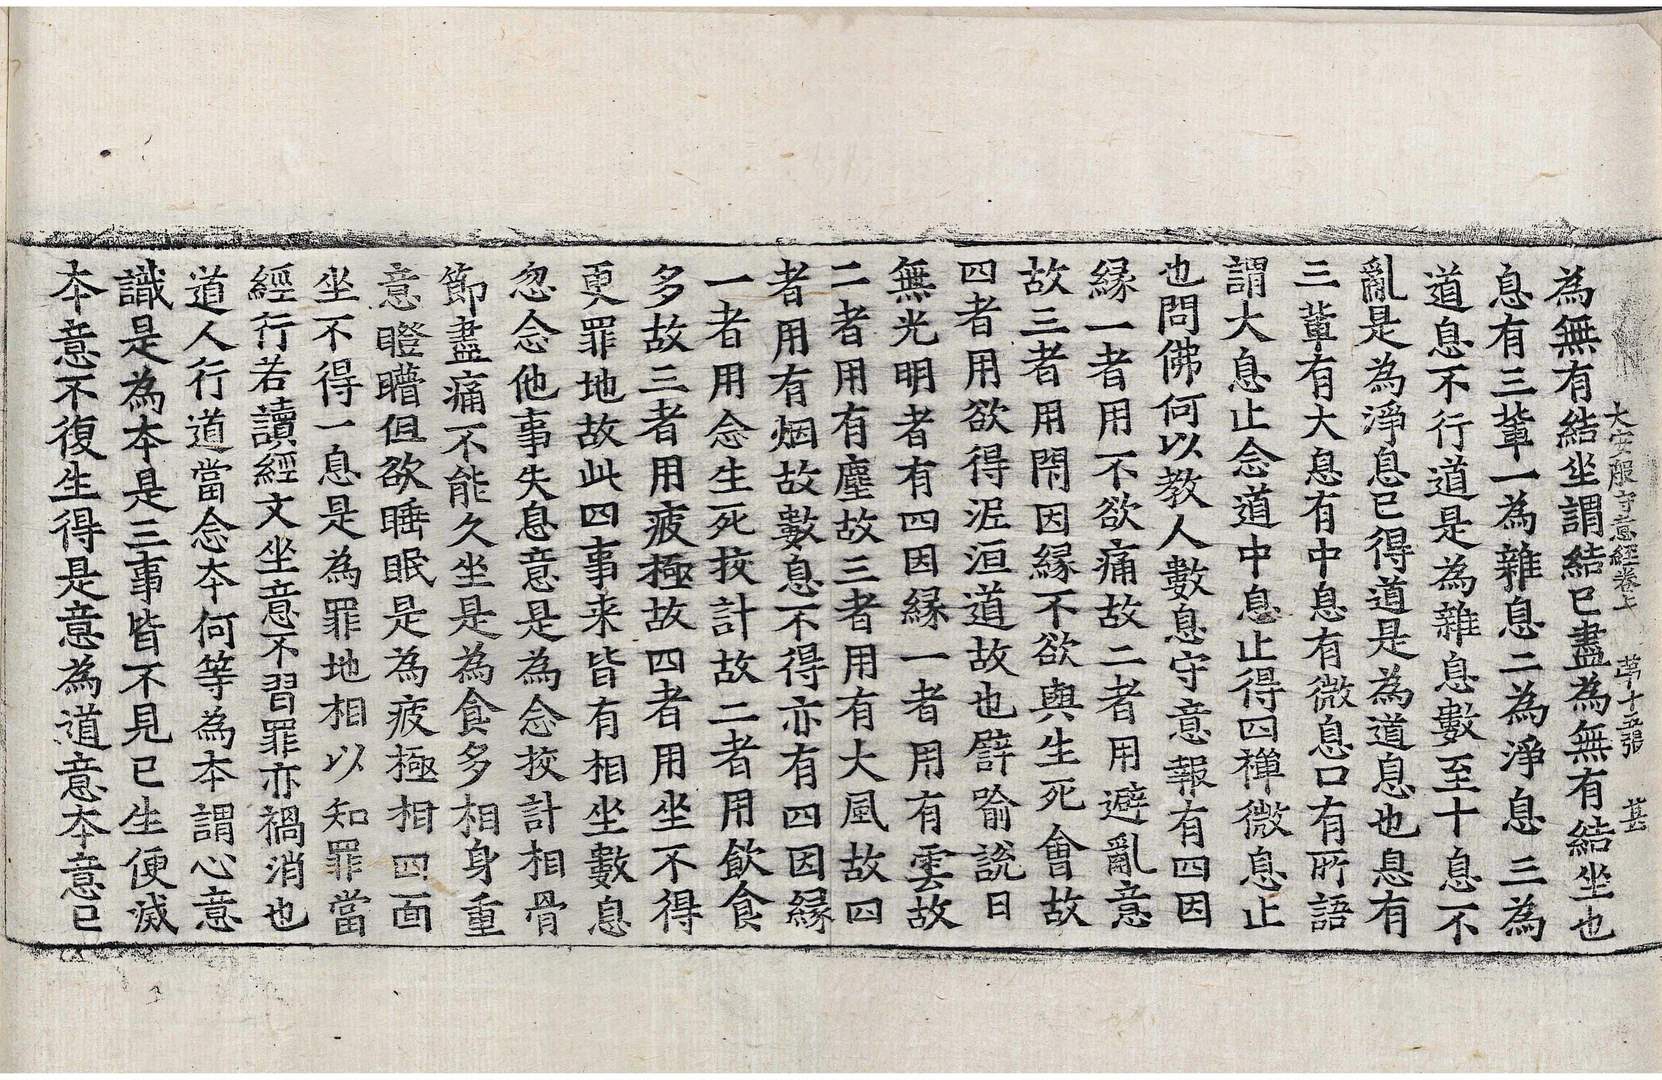 大安般守意經卷上 苐十五張 甚
為無有結坐謂結已盡為無有結坐也
息有三軰一為雜息二為淨息三為
道息不行道是為雜息數至十息不
亂是為淨息已得道是為道息也息有
三軰有大息有中息有微息口有所語
謂大息止念道中息止得四禪微息止
也問佛何以教人數息守意報有四因
縁一者用不欲痛故二者用避亂意
故三者用閇因縁不欲與生死會故
四者用欲得泥洹道故也譬喻說日
無光明者有四因縁一者用有雲故
二者用有塵故三者用有大風故四
者用有烟故數息不得亦有四因縁
一者用念生死挍計故二者用飲食
多故三者用疲極故四者用坐不得
更罪地故此四事来皆有相坐數息
忽念他事失息意是為念挍計相骨
節盡痛不能久坐是為食多相身重
意瞪瞢但欲睡眠是為疲極相四面
坐不得一息是為罪地相以知罪當
經行若讀經文坐意不習罪亦禍消也
道人行道當念夲何等為夲謂心意
識是為夲是三事皆不見已生便滅
夲意不復生得是意為道意夲意已